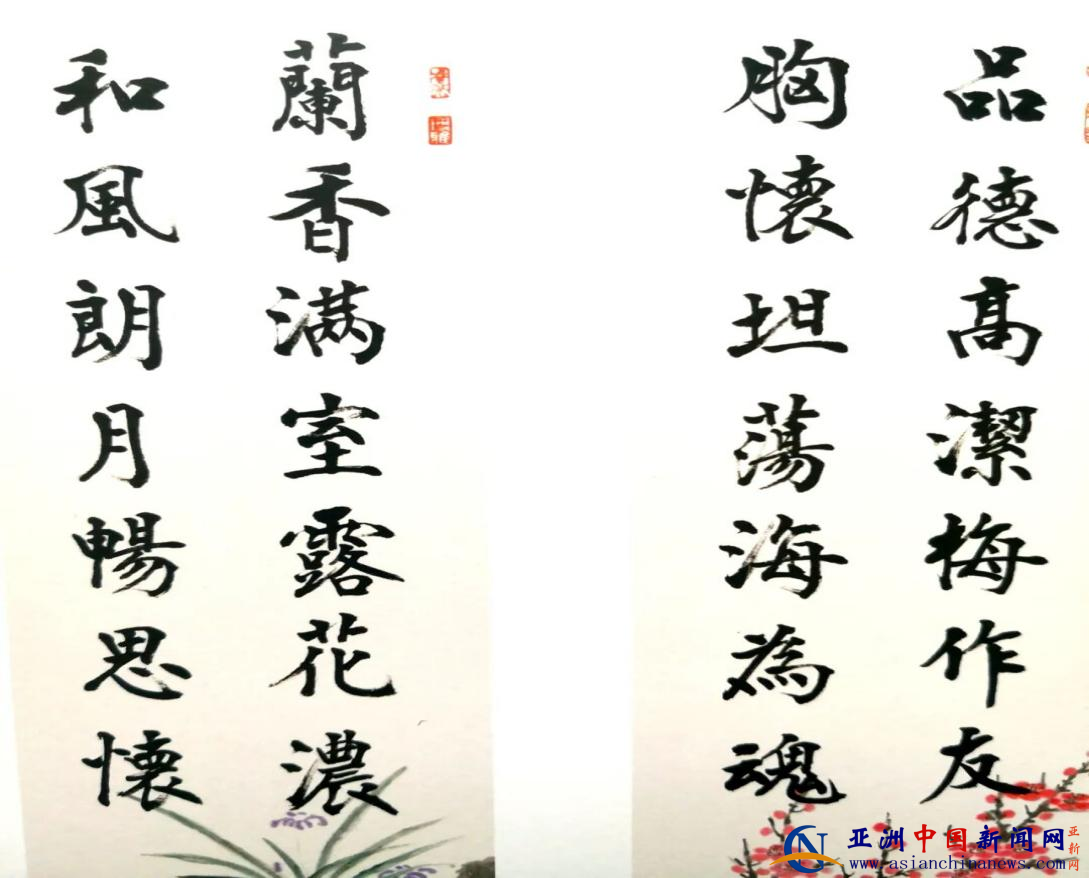 品德高潔梅作友
胸懷坦蕩海為魂
蘭香满室露花濃
和風朗月暢思懷
亚洲中国新闻网
亚新网
www.asianchinanews.com